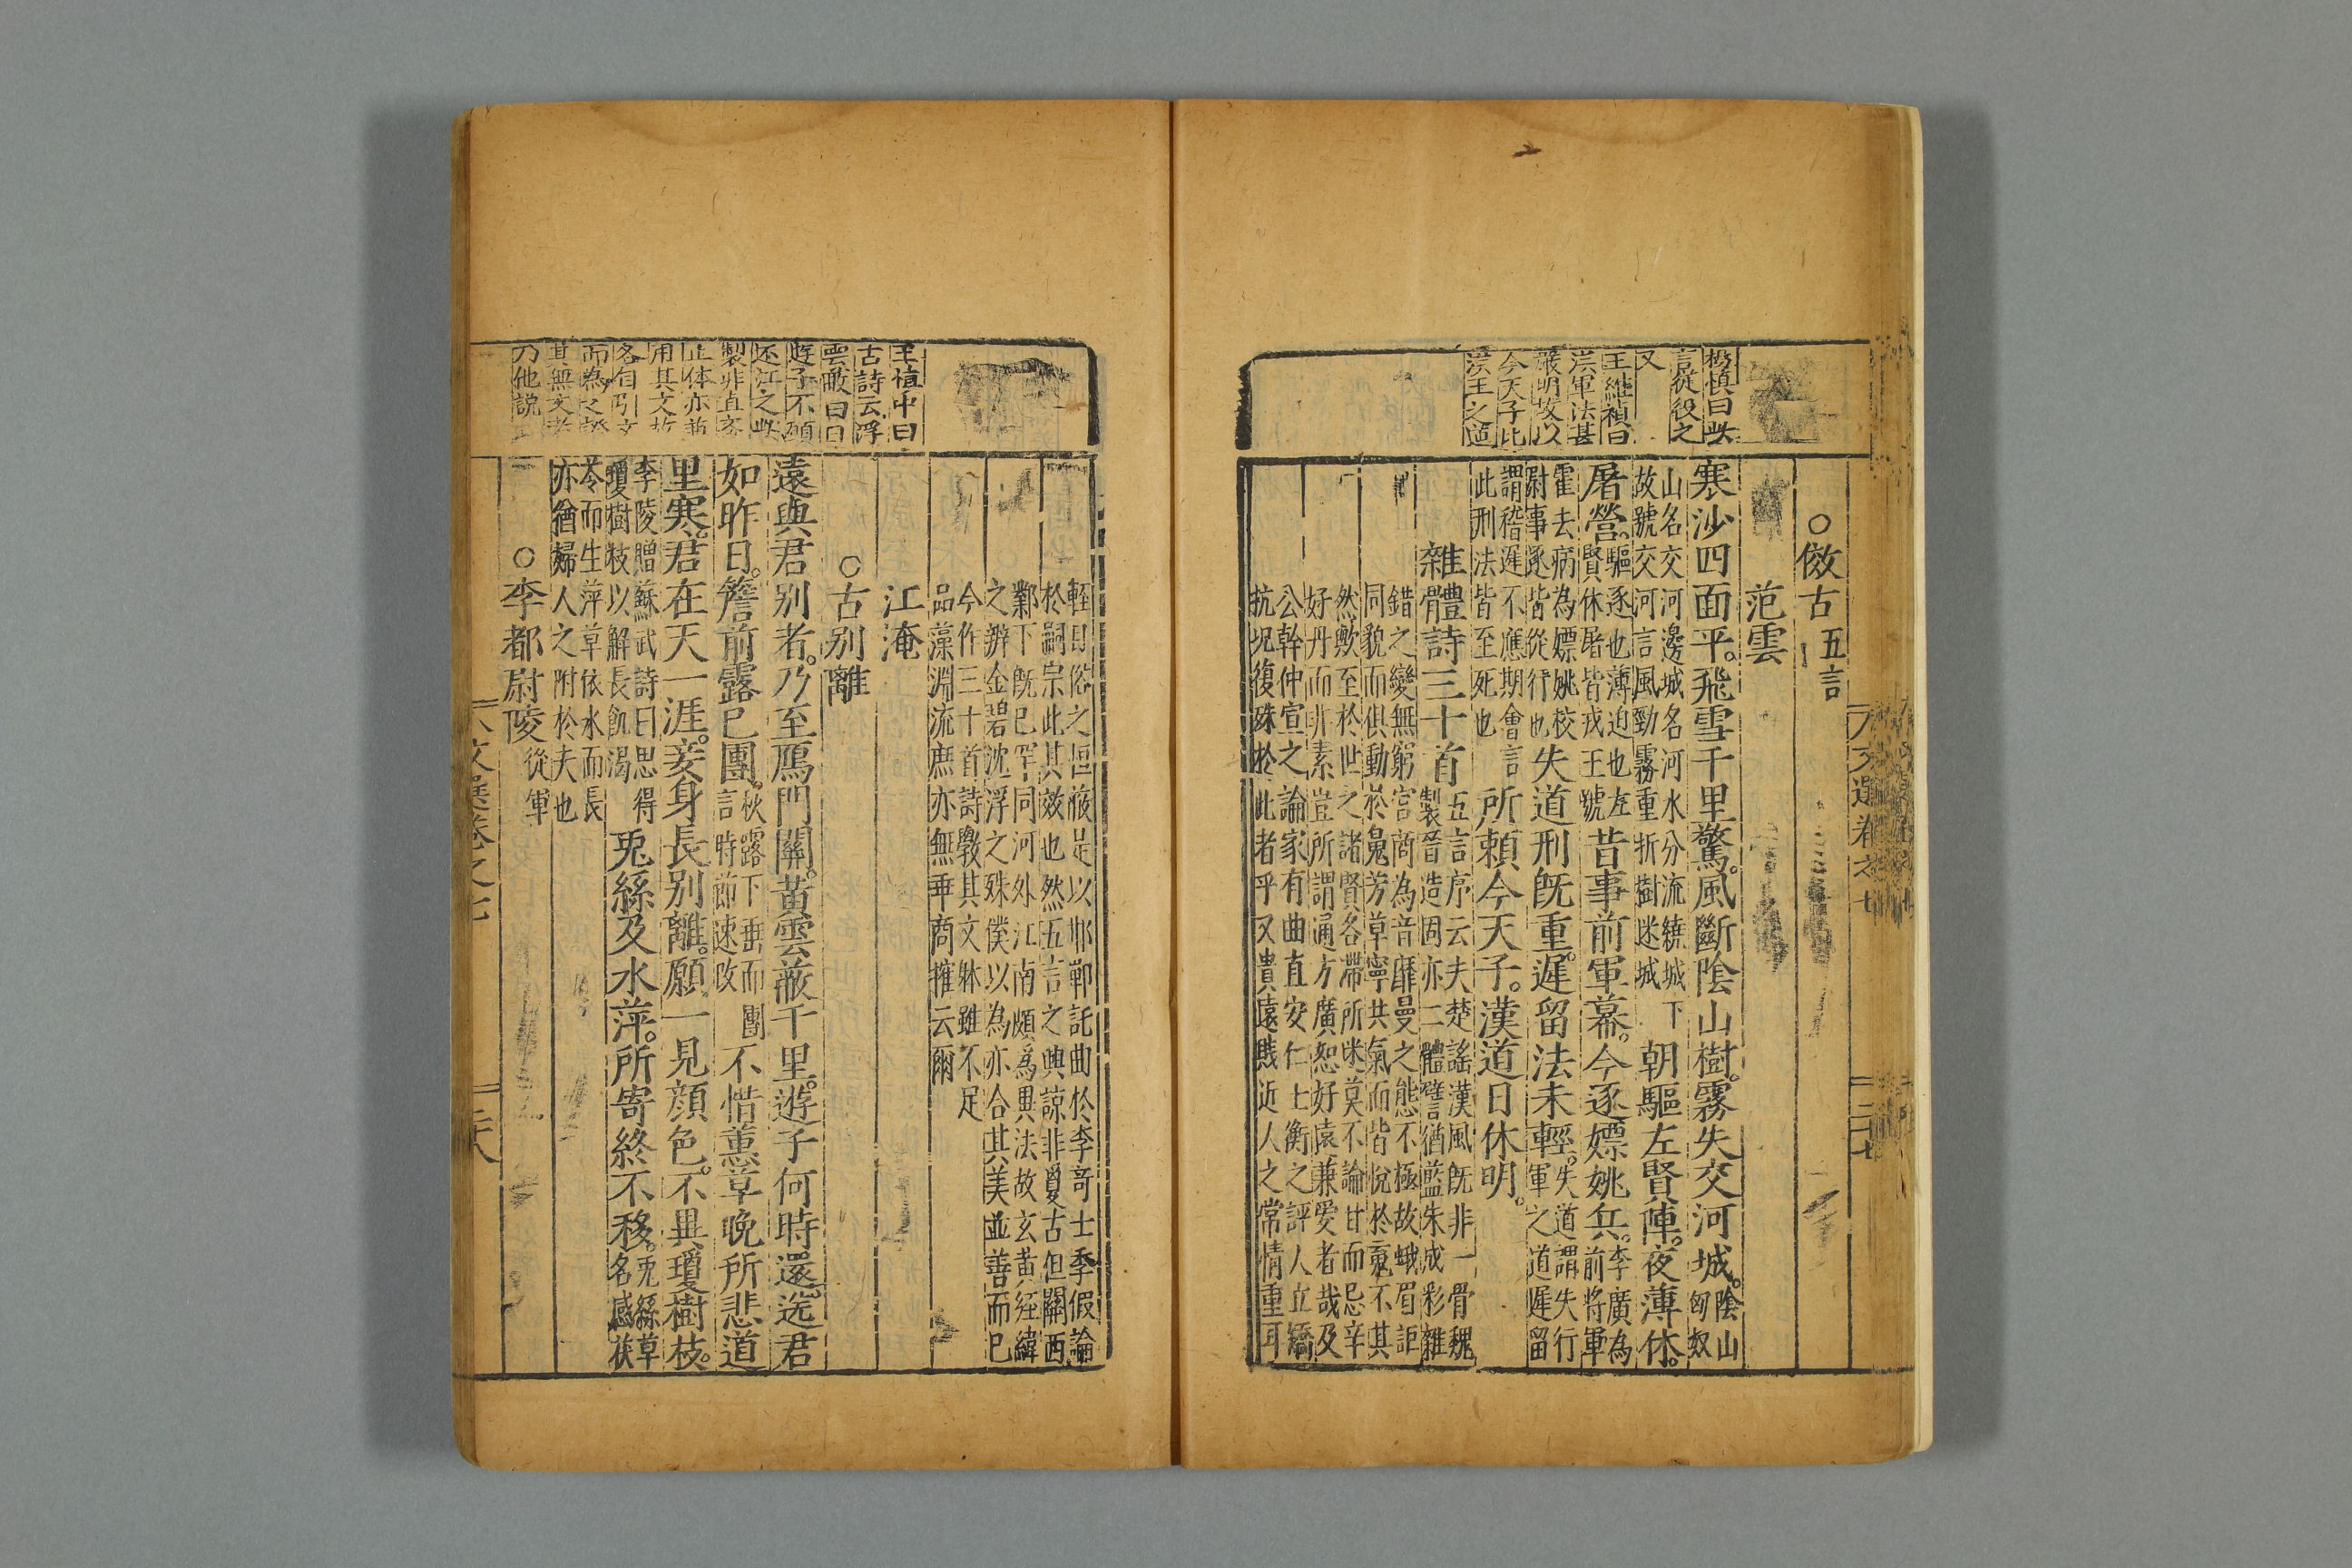 楊慎曰此
言從役之
又
王維禎曰
洪軍法甚
嚴明故以
今天子比
洪王之道
○傚古五言
范雲
寒沙四面平。飛雪千里驚。風斷陰山樹。霧失交河城。陰山匈奴
山名交河邊城名河水分流繞城下
故號交河言風勁霧重折樹迷城朝驅左賢陣。夜薄休。
屠營。驅逐也薄迫也左
賢休屠皆戎王號昔事前軍幕。今逐嫖姚兵。李廣為
前將軍
霍去病為嫖姚校
尉事逐皆從行也失道刑旣重。遲留法未輕。失道謂失行
軍之道遲留
謂稽遲不應期會言
此刑法皆至死也所頼今天子。漢道日休明。
雜體詩三十首五言序云夫楚謠漢風旣非一骨魏
製晉造固亦二體譬猶藍朱成彩雜
錯之變無窮宮商為音靡曼之態不極故蛾眉詎
同貌而俱動於魄芳草寧共氣而皆悅於䰟不其
然歟至於世之諸賢各滯所迷莫不論甘而忌辛
好丹而非素豈所謂通方廣恕好遠兼愛者哉及
公幹仲宣之論家有曲直安仁士衡之評人立矯
抗况復殊於此者乎又貴遠賤近人之常情重耳
文選卷之七
二十七
王恒中曰
古詩云浮
雲蔽白日
遊子不顧
返江之此
製非直文
止体亦前
用其文故
各自乃文
而為之於
其無文者
乃他説
輕目俗之恒蔽是以邯鄲託曲於李奇士季假論
於嗣宗此其效也然五言之興諒非夐古但關西
鄴下旣已罕同河外江南頗爲異法故玄黃經緯
之辨金碧沈浮之殊僕以為亦合其美並善而已
今作三十首詩斆其文躰雖不足
品藻淵流庶亦無乖商搉云爾
江淹
○古别離
遠與君别者。乃至鴈門關。黃雲蔽千里。遊子何時還。送君
如昨日。簷前露已團。秋露下垂而團
言時節速改不惜蕙草晚所悲道
里寒。君在天一涯。妾身長别離。願一見顏色。不異瓊樹枝。
李陵贈蘇武詩曰思得
瓊樹枝以解長飢渴兎絲及水萍。所寄終不移。兎絲草
名感茯
苓而生萍草依水而長
亦猶婦人之附於夫也
○李都尉陵從軍
文選卷之七
二十八